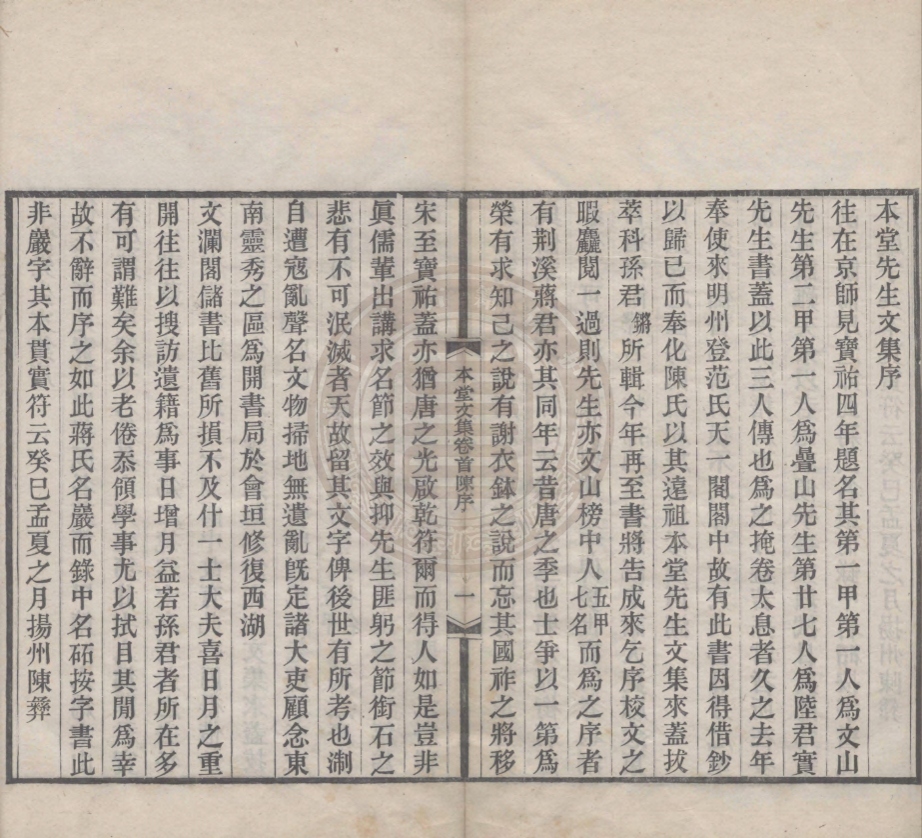 本堂先生文集序
往在京師見寶祐四年題名其第一甲第一人爲文山
先生第二甲第一人爲疊山先生第廿七人爲陸君實
先生書蓋以此三人傳也爲之掩卷太息者久之去年
奉使來明州登范氏天一閣閣中故有此書因得借鈔
以歸已而奉化陳氏以其遠祖本堂先生文集來蓋拔
萃科孫君鏘所輯今年再至書將告成來乞序校文之
暇麤閱一過則先生亦文山榜中人五甲七名而爲之序者
有荆溪蔣君亦其同年云昔唐之季也士爭以一第爲
榮有求知己之說有謝衣鉢之說而忘其國祚之將移
本堂文集卷首陳序 一
宋至寶祐蓋亦猶唐之光啟乾符爾而得人如是豈非
眞儒輩出講求名節之效與抑先生匪躬之節銜石之
悲有不可泯滅者天故留其文字俾後世有所考也淛
自遭寇亂聲名文物掃地無遺亂旣定諸大吏顧念東
南靈秀之區爲開書局於會垣修復西湖
文瀾閣儲書比舊所損不及什一士大夫喜日月之重
開往往以搜訪遺籍爲事日增月益若孫君者所在多
有可謂難矣余以老倦忝領學事尤以拭目其閒爲幸
故不辭而序之如此蔣氏名巖而錄中名砳按字書此
非巖字其本貫實符云癸巳孟夏之月揚州陳彝